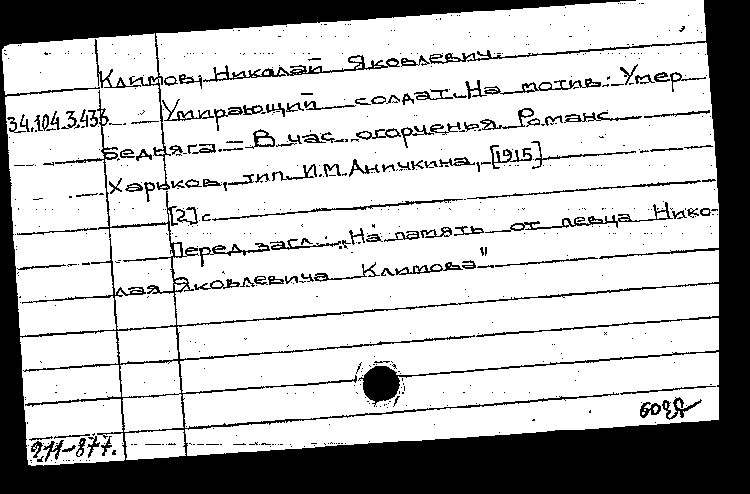 Климов, Николай Яковлевич.
34.104.3.433 Умирающий солдат. На мотив: Умер
бедняга. - В час огорченья. Романс
Харьков, тип. И.М. Аничкина, [1915]
[2] с.
Перед загл.: "На память от певца Нико-
лая Яковлевича Климова".
211-877.